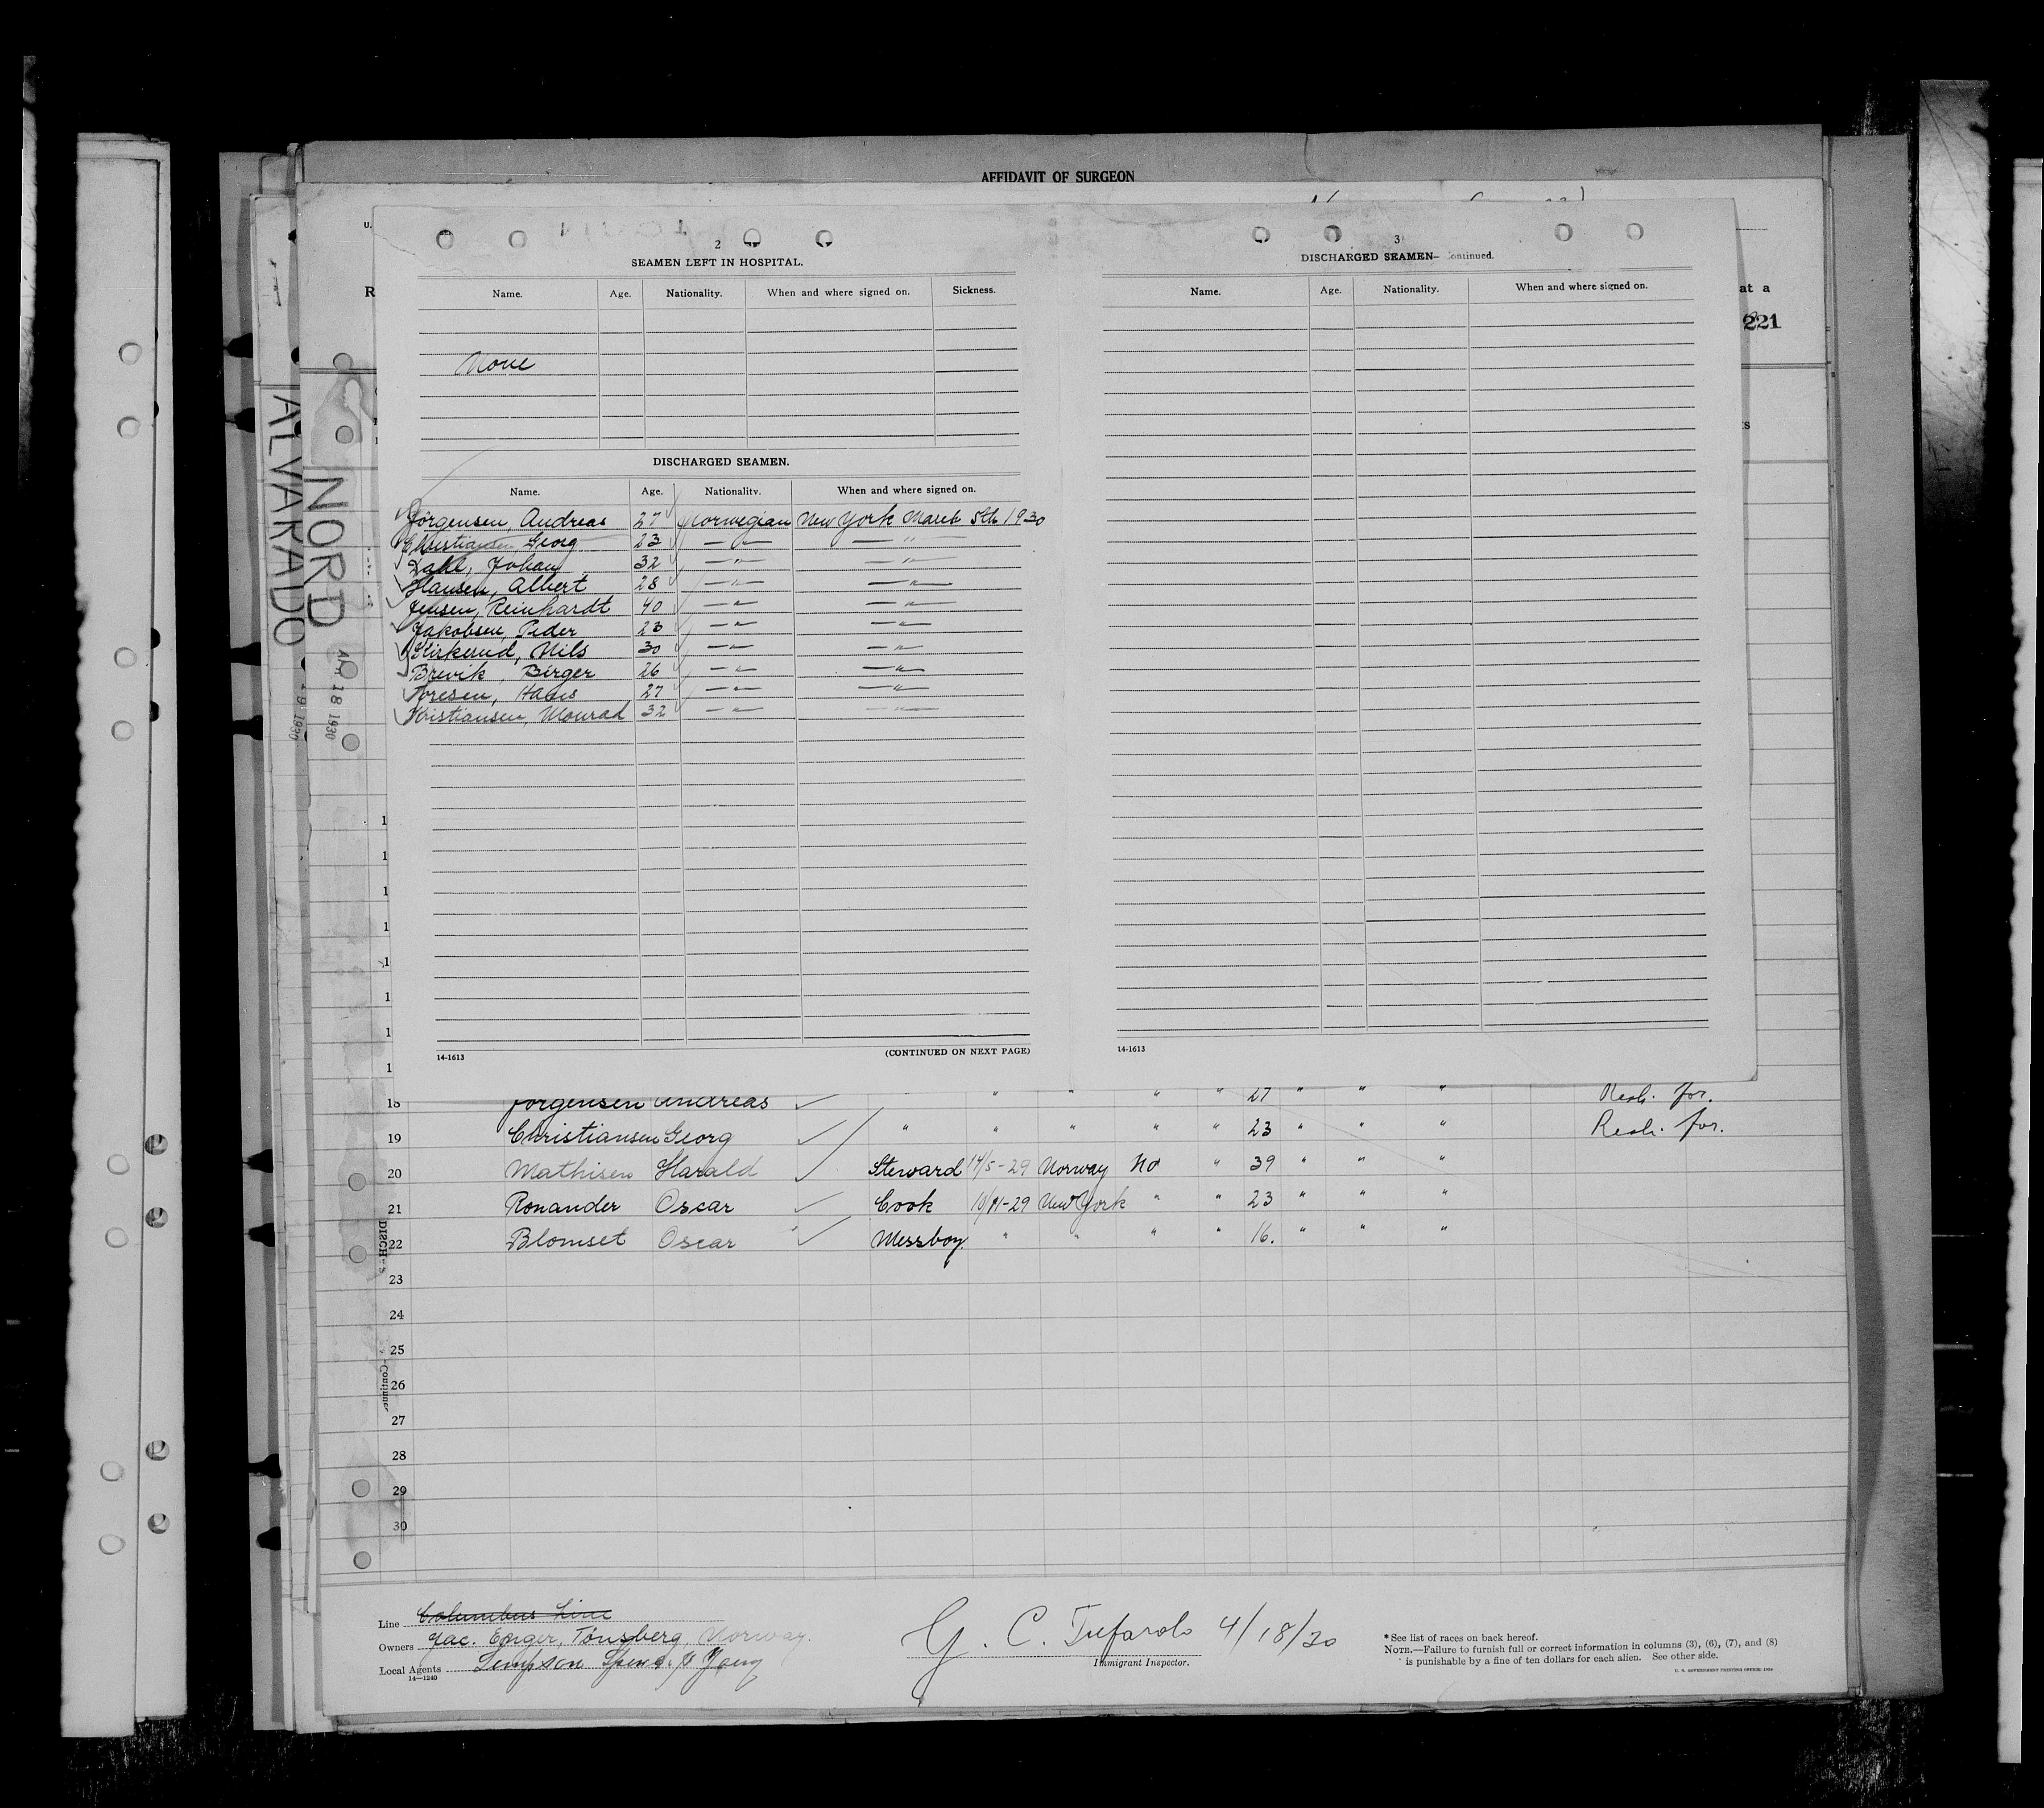 AFFIDAVIT OF SURGEON
U.
R
at a
221
ts
ALVARADO
9 1930
NORD
APR 18 1930
2
SEAMEN LEFT IN HOSPITAL.
Name. Age. Nationality. When and where signed on. Sickness.
None
DISCHARGED SEAMEN.
Name. Age. Nationality. When and where signed on.
Jörgensen, Andreas 27 Norwegian New York March 5th 1930
Christiansen, Georg 23 — " — — " —
Dahl, Johan 32 — " — — " —
Hansen, Albert 28 — " — — " —
Jensen, Reinhardt 40 — " — — " —
Jakobsen, Peder 23 — " — — " —
Kirkerud, Nils 30 — " — — " —
Brevik, Birger 26 — " — — " —
Toresen, Hans 27 — " — — " —
Kristiansen, Monrad 32 — " — — " —
14-1613 (CONTINUED ON NEXT PAGE)
3
DISCHARGED SEAMEN—Continued.
Name. Age. Nationality. When and where signed on.
14-1613
18 Jorgensen Andreas " " " " 27 " " "
19 Christiansen Georg " " " " " 23 " " "
20 Mathisen Harald Steward 14/5-29 Norway No " 39 " " "
21 Ronander Oscar Cook 10/11-29 New York " " 23 " " "
22 Blomset Oscar Messboy " " " " 16. " " "
23
24
25
26
27
28
29
30
Line Columbus Line
Owners Jac. Enger, Tönsberg, Norway.
Local Agents Simpson Spence & Young
14—1240
G. C. Tufarolo 4/18/30
Immigrant Inspector.
* See list of races on back hereof.
NOTE.—Failure to furnish full or correct information in columns (3), (6), (7), and (8)
is punishable by a fine of ten dollars for each alien. See other side.